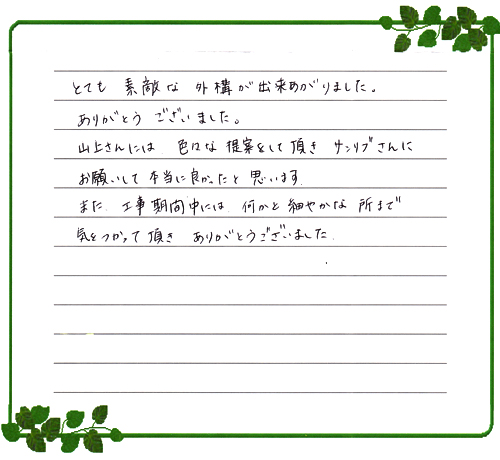 とても 素敵な 外構が出来あがりました。
ありがとう ございました。
山上さんには 色々な 提案をして頂き サンリブさんに
お願いして 本当に良かったと 思います
また 工事期間中には 何かと 細やかな 所まで
気をつかって頂き ありがとうございました